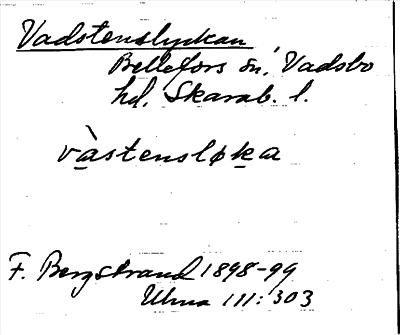 Vadstenslyckan
Bellefors sn. Vadsbo
hd. Skarab. l.
và̱stensløḵa
F. Bergstrand 1898-99
Ulma 111:303